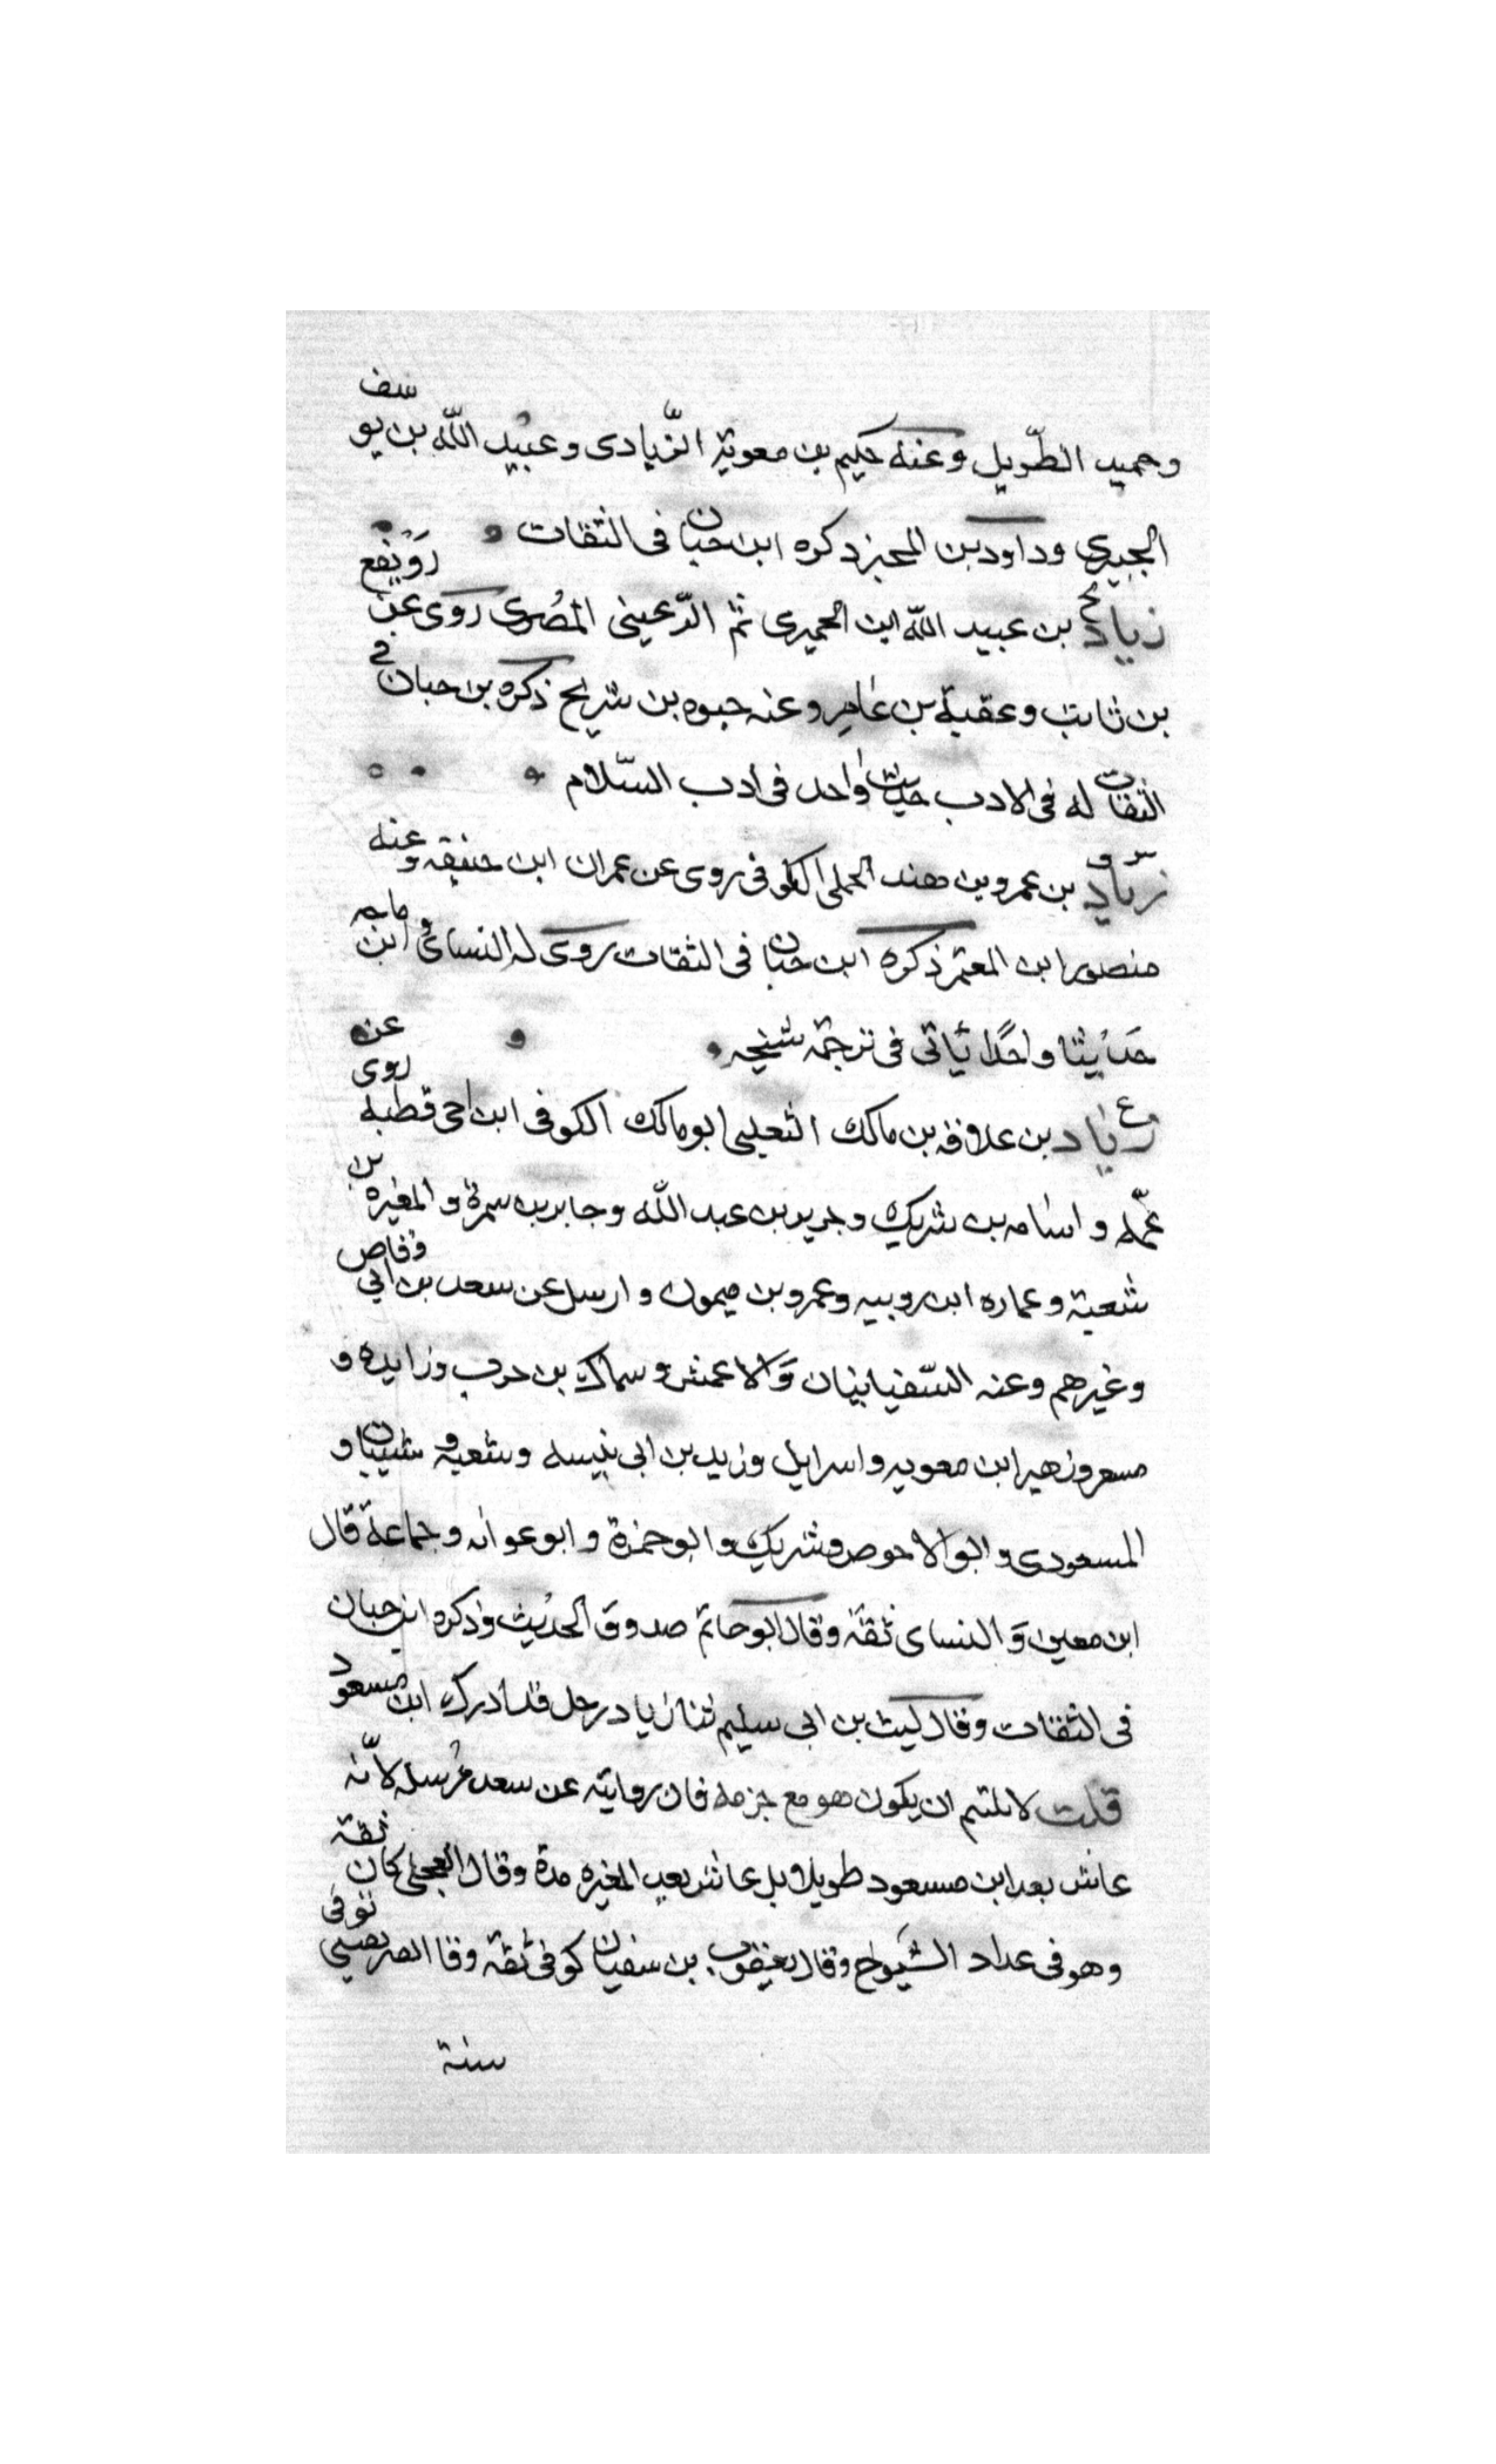 وحميد الطّويل وعنه حكيم بن معوية الزّيادى وعبيد الله بن يوسف
الجبيرى وداود بن المحبر ذكره ابن حبان فى الثقات
زياد بن عبيد الله ابن الحميرى ثم الرّعينى المصرى روى عن رويفع
بن ثابت وعقبة بن عامر وعنه حيوه بن شريح ذكره بن حبان فى
الثقات له فى الادب حديث واحد فى أدب السّلام
زياد بن عمرو بن هند الجملى الكوفى روى عن عمران ابن حنيفه وعنه
منصور ابن المعتمر ذكره ابن حبان فى الثقات روى له النسائى و ابن ماجه
حديثا واحدًا يأتى فى ترجمة شيخه
ع زياد بن علاقه بن مالك الثعلبى ابو مالك الكوفى ابن اخى قطبه روى عن
عمّه و اسامه بن شريك و جرير بن عبد الله وجابر بن سمرة و المغيره بن
شعبة و عماره ابن رويبه وعمرو بن ميمون و ارسل عن سعد بن ابي وقاص
وغيرهم وعنه السّفيانيان وَالاعمش و سماك بن حرب وزايده و
مسعر وزهير ابن معويه و اسرايل وزيد بن ابى نيسه وشعبه و شيبان و
المسعودى و ابو الاحوص وشريك وابو حمزة و ابو عوانه وجماعة قال
ابن معين وَ النساى ثقة وقال ابو حاتم صدوق الحديث وذكره ابن حبان
فى الثقات وقال ليث بن ابى سليم ثنا زياد رجل قد ادرك ابن مسعود
قلت لا يلتئم ان يكون هو مع جزمه فان روايته عن سعد مرسله لأنّه
عاش بعد ابن مسعود طويلا بل عاش بعد المغيره مدة وقال العجلى كان ثقة
وهو فى عداد الشيوخ وقال يعقوب بن سفيان كوفى ثقة وقا الصريفينى توفى
سنة